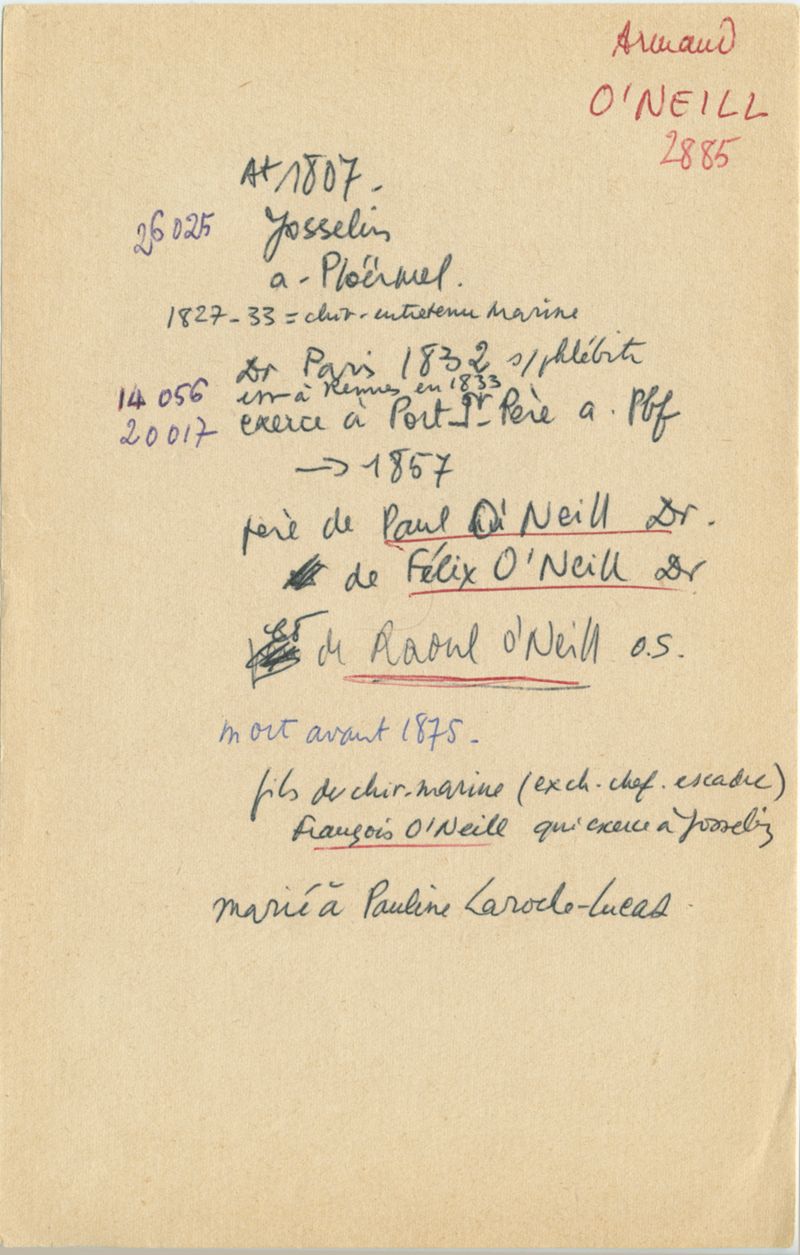 Armand
O'NEILL
2885
At 1807.
26 025 Josselin
a - Ploërmel.
1827-33 = chir. entretenu Marine
Dr Paris 1832 s/phlébite
14 056 est à Rennes en 1833
20 017 exerce à Port-St-Père a. Pbf
→ 1857
père de Paul O'Neill Dr.
de Félix O'Neill Dr
de Raoul O'Neill o.s.
mort avant 1875.
fils du chir. marine (ex ch. chef. escadre)
François O'Neill qui exerce à Josselin
marié à Pauline Laroche-Lucas.